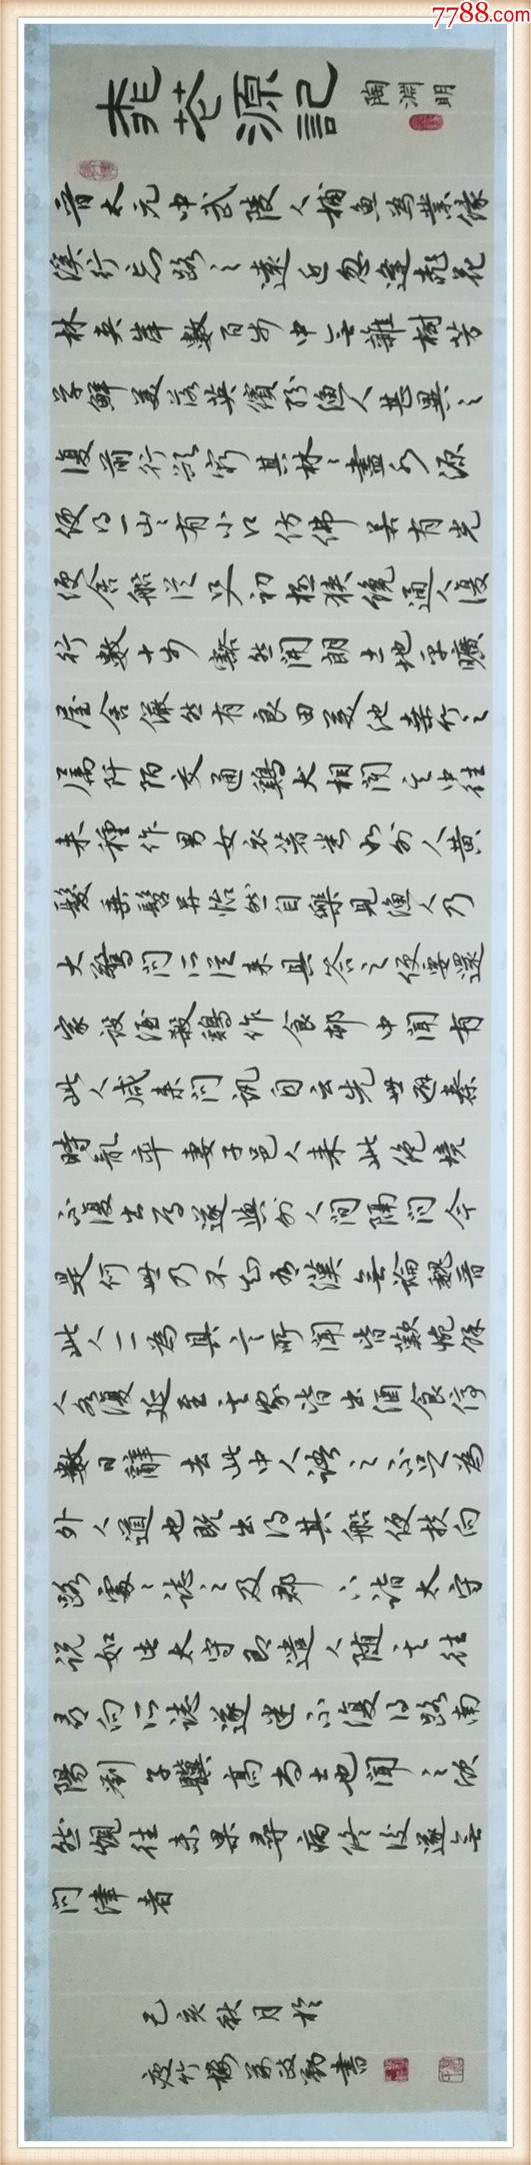 7788.com
桃花源記
陶淵明
晉太元中武陵人捕魚為業緣
溪行忘路之遠近忽逢桃花
林夾岸數百步中無雜樹芳
草鮮美落英繽紛漁人甚異之
復前行欲窮其林〻盡水源
便得一山〻有小口仿佛若有光
便舍船從口入初極狹纔通人復
行數十步豁然開朗土地平曠
屋舍儼然有良田美池桑竹之
屬阡陌交通鷄犬相聞其中往
來種作男女衣著悉如外人黃
髮垂髫并怡然自樂見漁人乃
大驚問所從來具答之便要還
家設酒殺鷄作食邨中聞有
此人咸來問訊自云先世避秦
時亂率妻子邑人來此絕境
不復出焉遂與外人間隔問今
是何世乃不知有漢無論魏晉
此人一一為具言所聞皆歎惋餘
人各復延至其家皆出酒食停
數日辭去此中人語云不足為
外人道也既出得其船便扶向
路處〻誌之及郡下詣太守
說如此太守即遣人隨其往
尋向所誌遂迷不復得路南
陽劉子驥高尚士也聞之欣
然規往未果尋病終後遂無
問津者
己亥秋月於
竹書